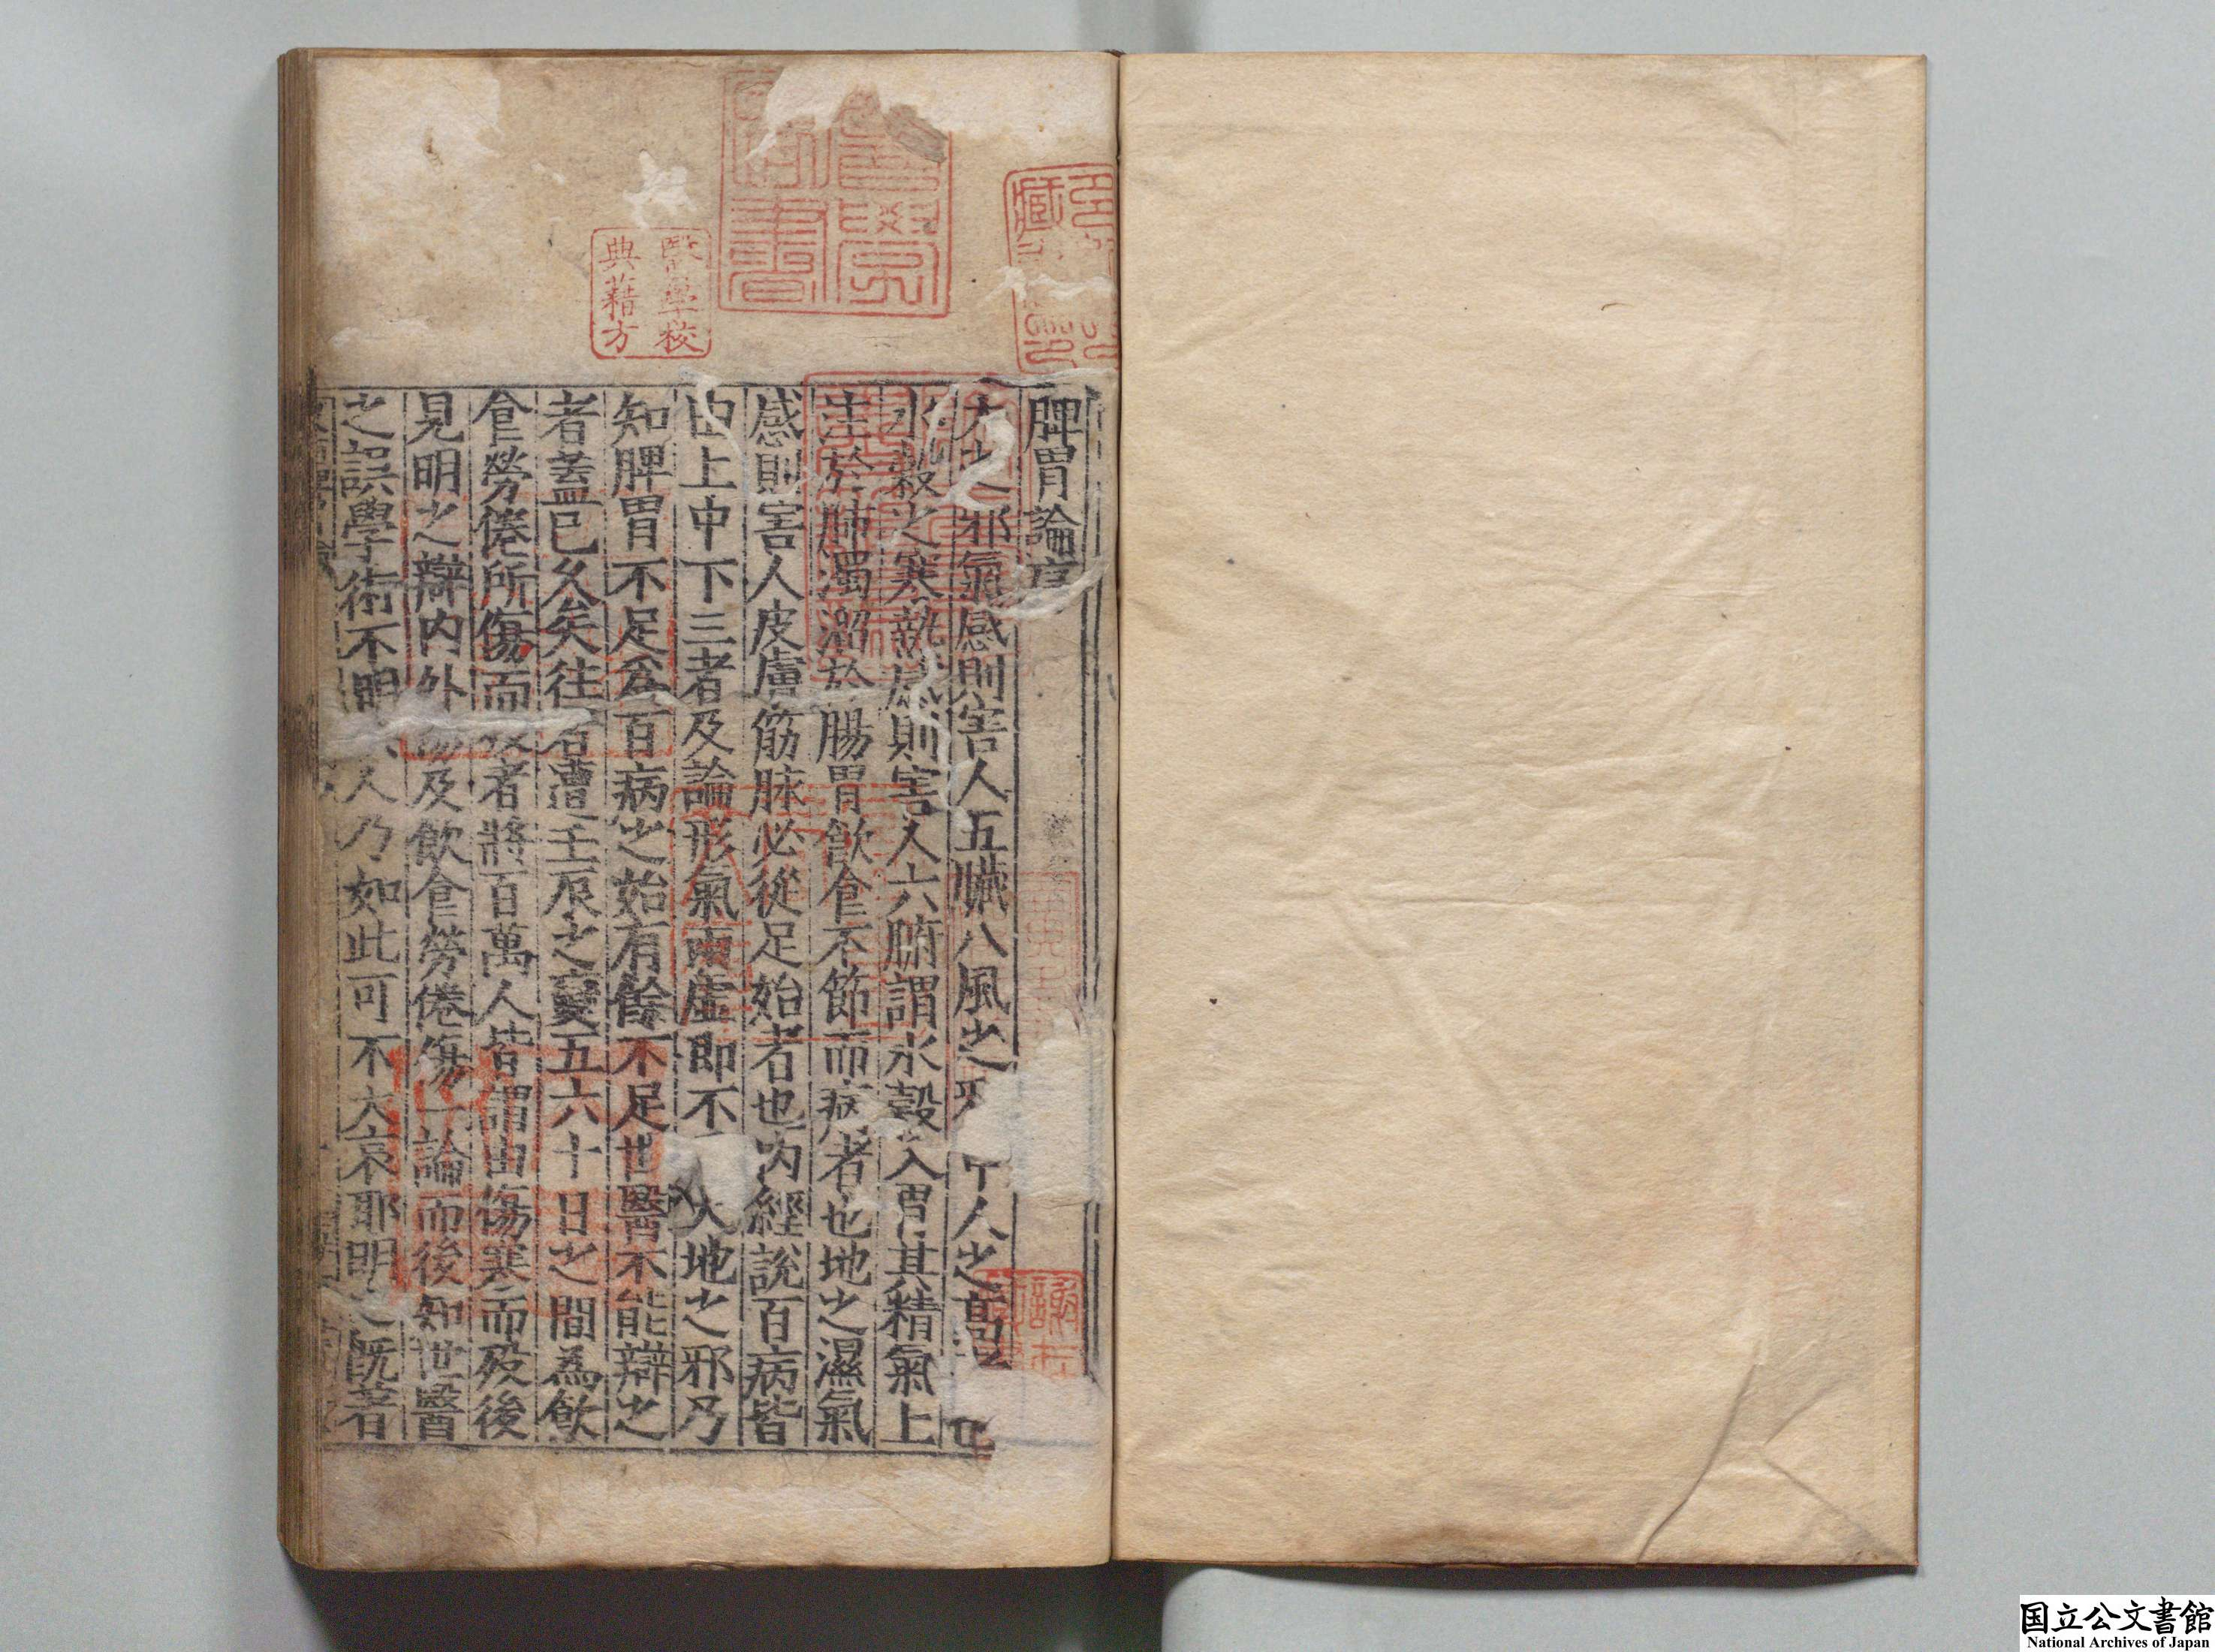 脾胃論序
天之邪氣感則害人五臟八風之邪中人之高
水穀之寒熱感則害人六腑謂水穀入胃其精氣上
注於肺濁溜於腸胃飲食不節而病者也地之濕氣
感則害人皮膚筋脉必從足始者也內經說百病皆
由上中下三者及論形氣兩虛即不 天地之邪乃
知脾胃不足為百病之始有餘不足世醫不能辯之
者蓋已久矣往者遭壬辰之變五六十日之間為飲
食勞倦所傷而歿者將百萬人皆謂由傷寒而歿後
見明之辯內外傷及飲食勞倦傷一論而後知世醫
之誤學術不明 人乃如此可不大哀耶明之既著
醫學校
典藉方
国立公文書館
National Archives of Japan